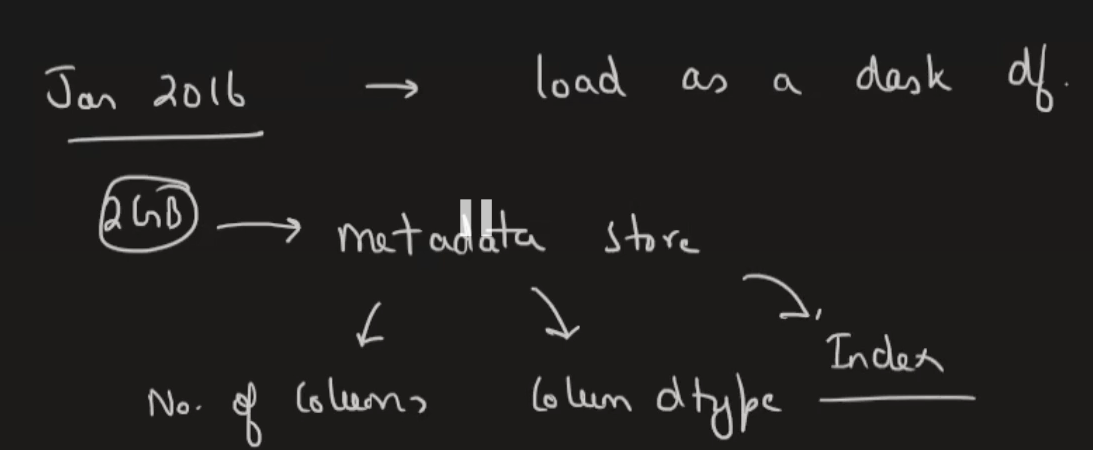 Jan 2016 → load as a dask df.
2GB → metadata store
Index
No. of Columns Column dtype